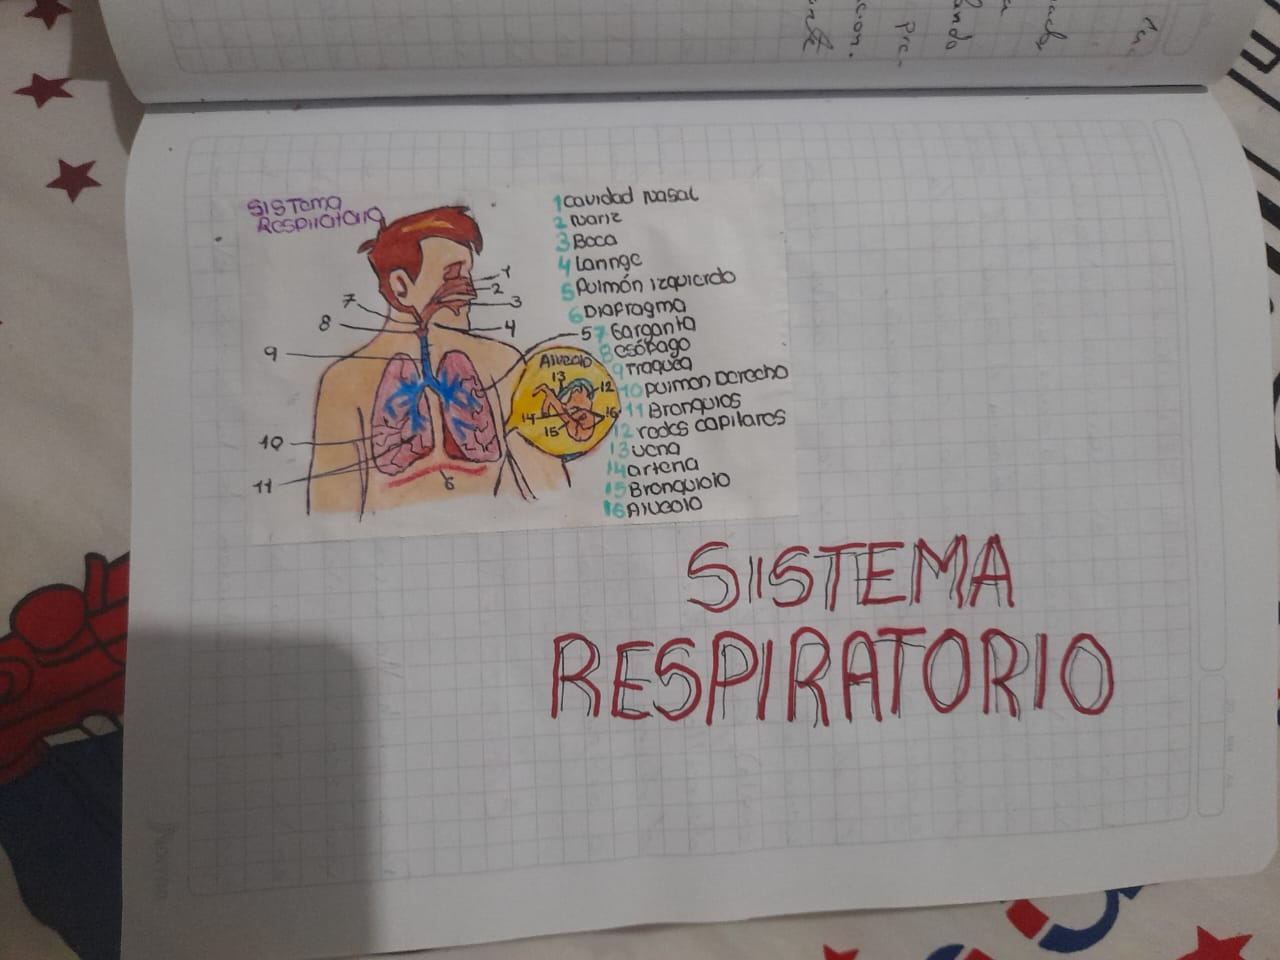 SISTEMA
RESPIRATORIO
1 cavidad nasal
2 nariz
3 Boca
4 Laringe
5 Pulmón izquierdo
6 Diafragma
7 Garganta
8 esófago
9 Traquea
10 pulmon Derecho
11 Bronquios
12 redes capilares
13 vena
14 arteria
15 Bronquiolo
16 Alveolo
1
2
3
4
5
7
8
9
10
11
6
Alveolo
13
12
14
16
15
SISTEMA
RESPIRATORIO